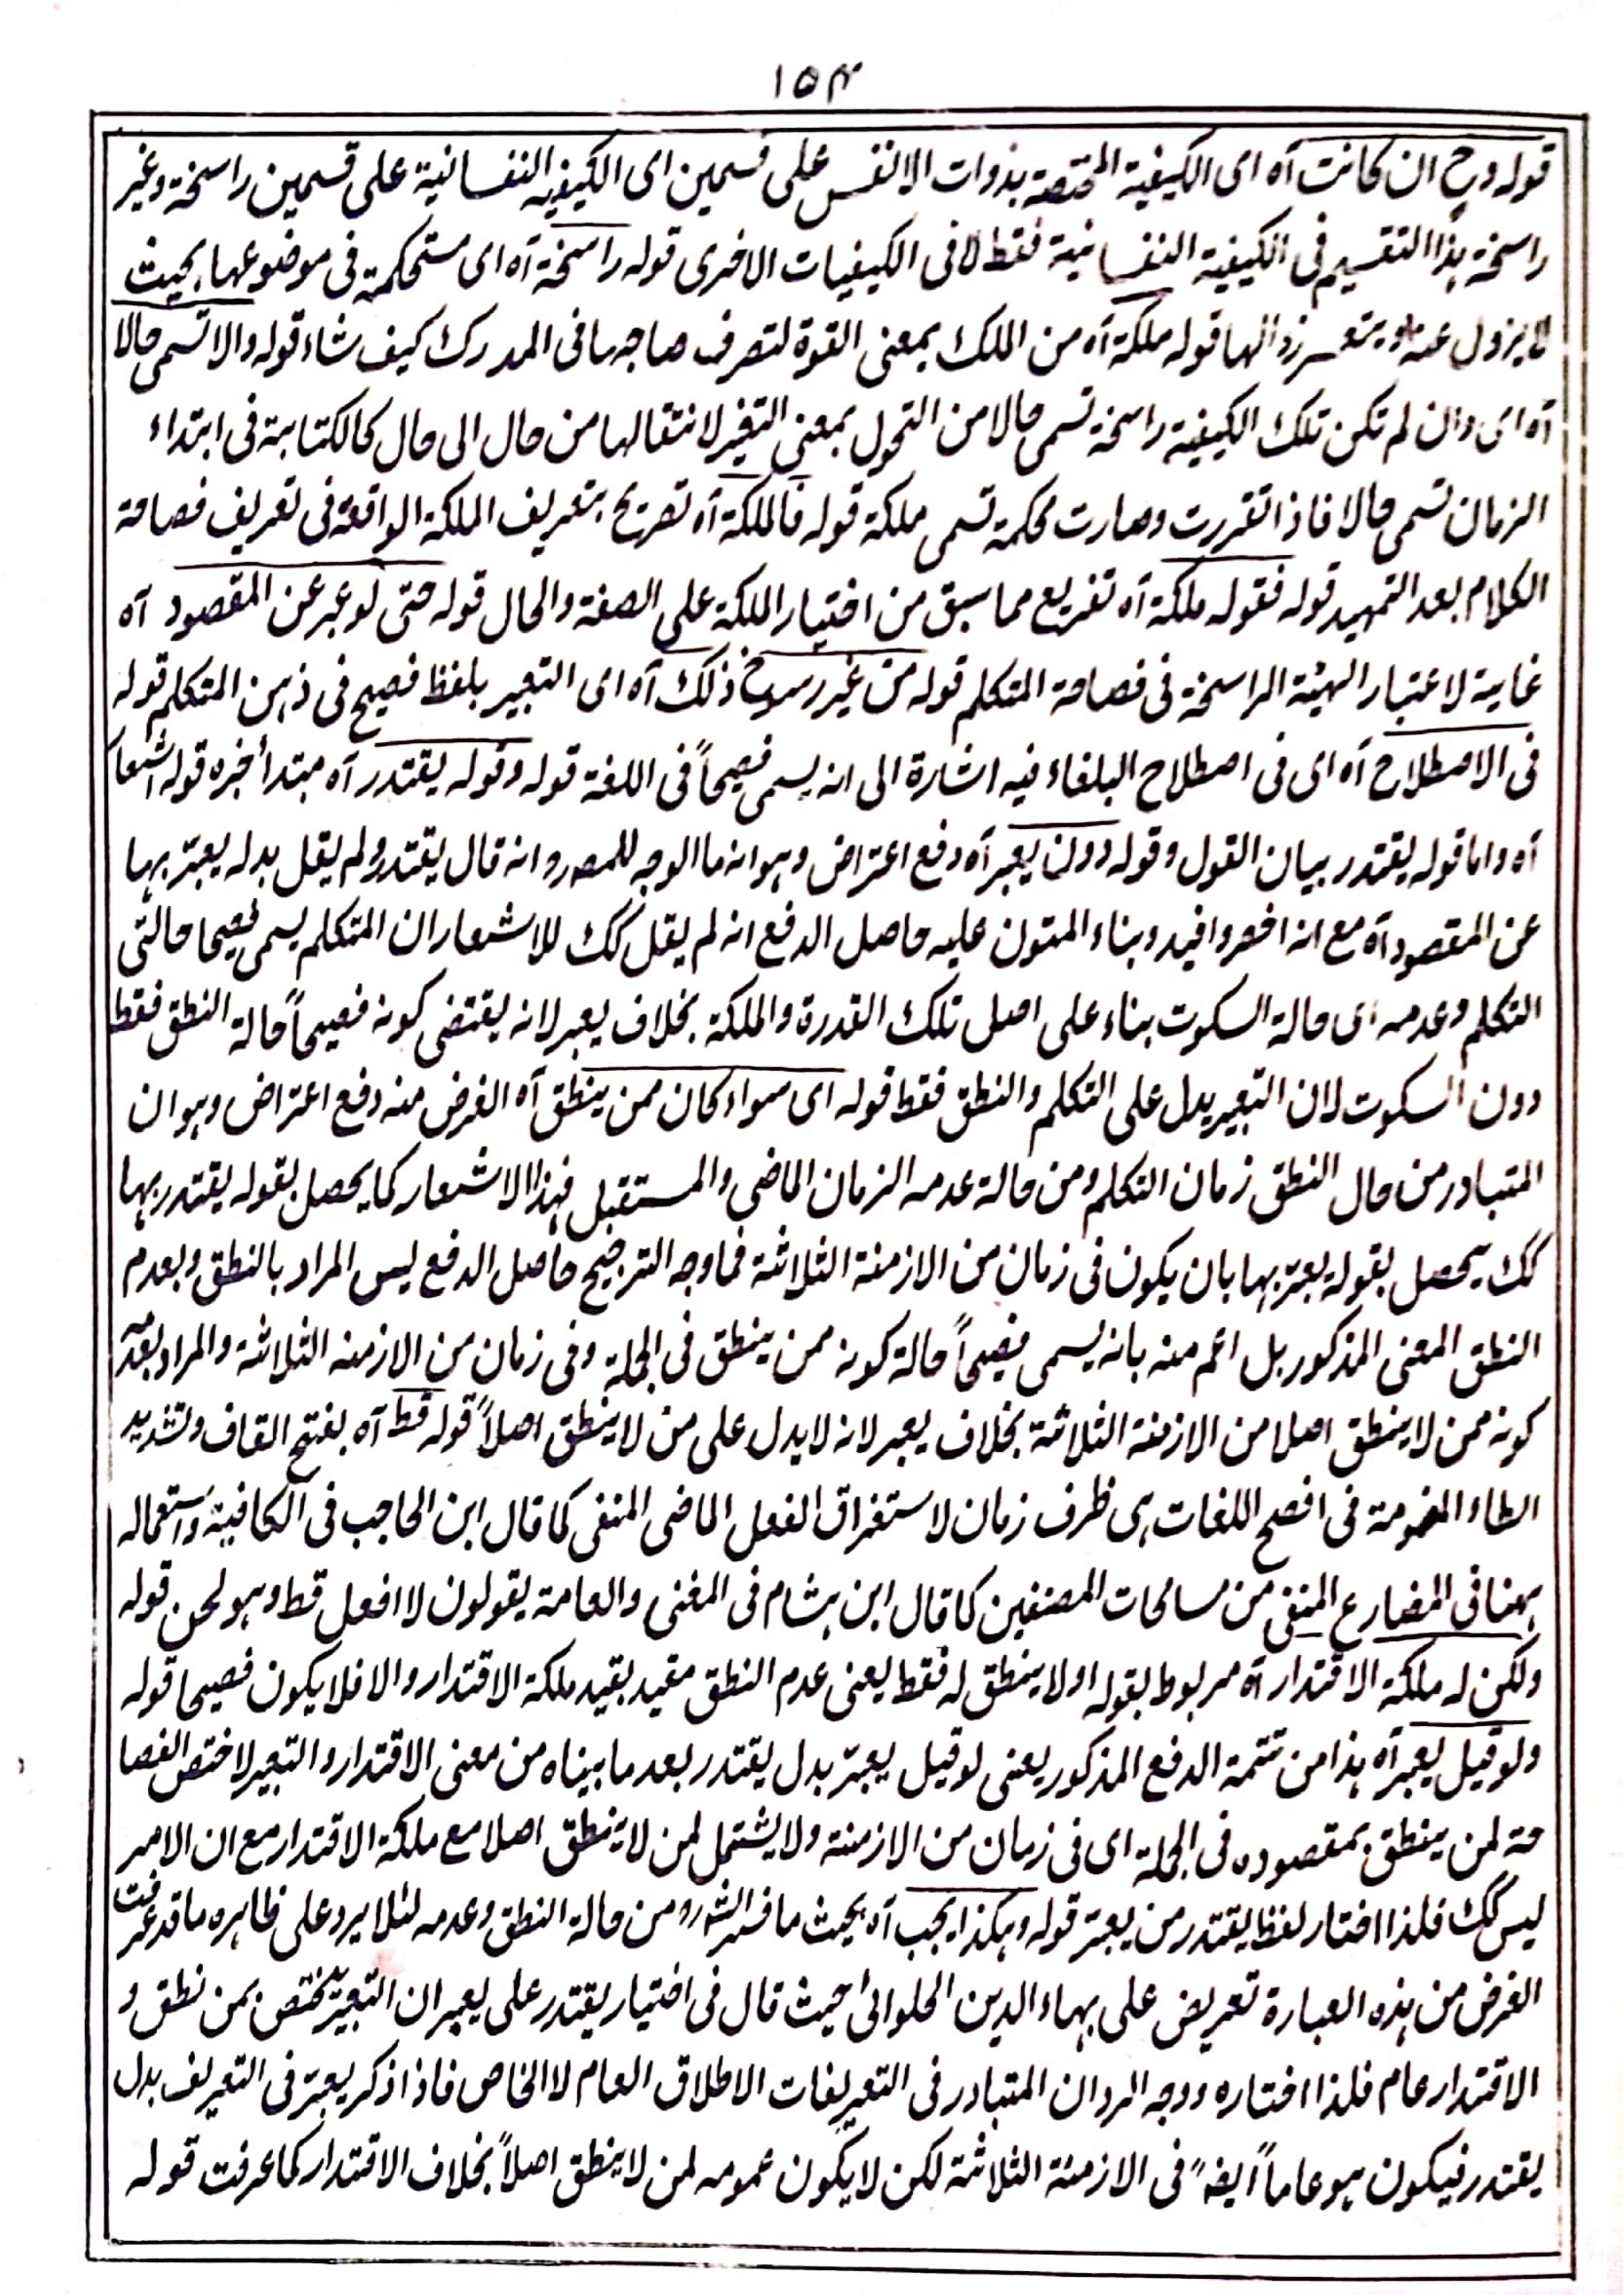 ١٥٣
قوله وح ان كانت آه اى الكيفية المختصة بذوات الانفس على قسمين اى الكيفيه النفسانية على قسمين راسخة وغير
راسخة هذا التقسيم فى الكيفية النفسانية فقط لا فى الكيفيات الاخرى قوله راسخة آه اى مستحكمة فى موضوعها بحيث
لا يزول عنه او يتعسر زوالها قوله ملكة آه من الملك بمعنى القوة لتصرف صاحبها فى المدرك كيف شاء قوله والا تسمى حالا
آه اى وان لم تكن تلك الكيفية راسخة تسمى حالا من التحول بمعنى التغير لانتقالها من حال الى حال كالكتابة فى ابتداء
الزمان تسمى حالا فاذا تقررت وصارت محكمة تسمى ملكة قوله فالملكة آه تصريح بتعريف الملكة الواقعة فى تعريف فصاحة
الكلام بعد التمهيد قوله فقوله ملكة آه تفريع مما سبق من اختيار الملكة على الصفة والحال قوله حتى لو عبر عن المقصود آه
غاية لاعتبار الهيئة الراسخة فى فصاحة المتكلم قوله من غير رسوخ ذلك آه اى التعبير بلفظ فصيح فى ذهن المتكلم قوله
فى الاصطلاح آه اى فى اصطلاح البلغاء فيه اشارة الى انه يسمى فصيحاً فى اللغة قوله وقوله يقتدر آه مبتدأ خبره قوله اشعار
آه واما قوله يقتدر بيان القول وقوله دون يعبر آه دفع اعتراض وهو انه ما الوجه للمصر وانه قال يقتدر ولم يقل بدله يعبر بها
عن المقصود آه مع انه اخصر وافيد وبناء المتون عليه حاصل الدفع انه لم يقل كك للاشعار ان المتكلم يسمى فصيحا حالتى
التكلم وعدمه اى حالة السكوت بناء على اصل تلك القدرة والملكة بخلاف يعبر لانه يقتضى كونه فصيحاً حالة النطق فقط
دون السكوت لان التعبير يدل على التكلم والنطق فقط قوله اى سواء كان ممن ينطق آه الغرض منه دفع اعتراض وهو ان
المتبادر من حال النطق زمان التكلم ومن حالة عدمه الزمان الماضى والمستقبل فهذا الاشعار كما يحصل بقوله يقتدر بها
كك يحصل بقوله يعبر بها بان يكون فى زمان من الازمنة الثلاثة فما وجه الترجيح حاصل الدفع ليس المراد بالنطق وبعدم
النطق المعنى المذكور بل اعم منه بانه يسمى فصيحاً حالة كونه ممن ينطق فى الجملة وفى زمان من الازمنه الثلاثة والمراد بعدمه
كونه ممن لا ينطق اصلا من الازمنة الثلاثة بخلاف يعبر لانه لا يدل على من لا ينطق اصلاً قوله قط آه بفتح القاف وتشديد
الطاء المضمومة فى افصح اللغات هى ظرف زمان لاستغراق الفعل الماضى المنفى كما قال ابن الحاجب فى الكافية واستعماله
ههنا فى المضارع المنفى من مسامحات المصنفين كما قال ابن هشام فى المغنى والعامة يقولون لا افعل قط وهو لحن قوله
ولكن له ملكة الاقتدار آه مربوط بقوله او لا ينطق له فقط يعنى عدم النطق مقيد بقيد ملكة الاقتدار والا فلا يكون فصيحا قوله
ولو قيل يعبر آه هذا من تتمة الدفع المذكور يعنى لو قيل يعبر بدل يقتدر بعد ما بيناه من معنى الاقتدار والتعبير لاختص الفصا
حة لمن ينطق بمقصوده فى الجملة اى فى زمان من الازمنة ولا يشتمل لمن لا ينطق اصلا مع ملكة الاقتدار مع ان الامر
ليس كك فلذا اختار لفظ يقتدر من يعبر قوله وهكذا يجب آه بحيث ما فسر الشه رو من حالة النطق وعدمه لئلا يرد على ظاهره ما قد عرفت
الغرض من هذه العبارة تعريض على بهاء الدين الحلوائى حيث قال فى اختيار يقتدر على يعبر ان التعبير يختص بمن نطق و
الاقتدار عام فلذا اختاره ووجه الرد ان المتبادر فى التعريفات الاطلاق العام لا الخاص فاذا ذكر يعبر فى التعريف بدل
يقتدر فيكون هو عاماً ايضاً فى الازمنة الثلاثة لكن لا يكون عمومه لمن لا ينطق اصلاً بخلاف الاقتدار كما عرفت قوله